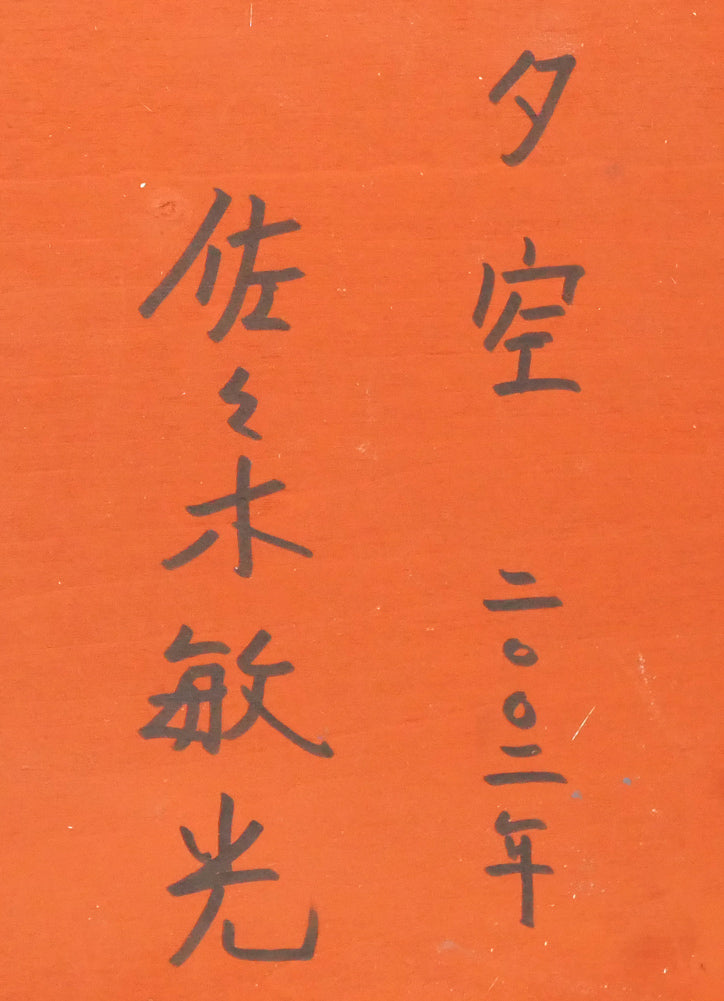 夕空 二〇〇二年
佐々木敏光